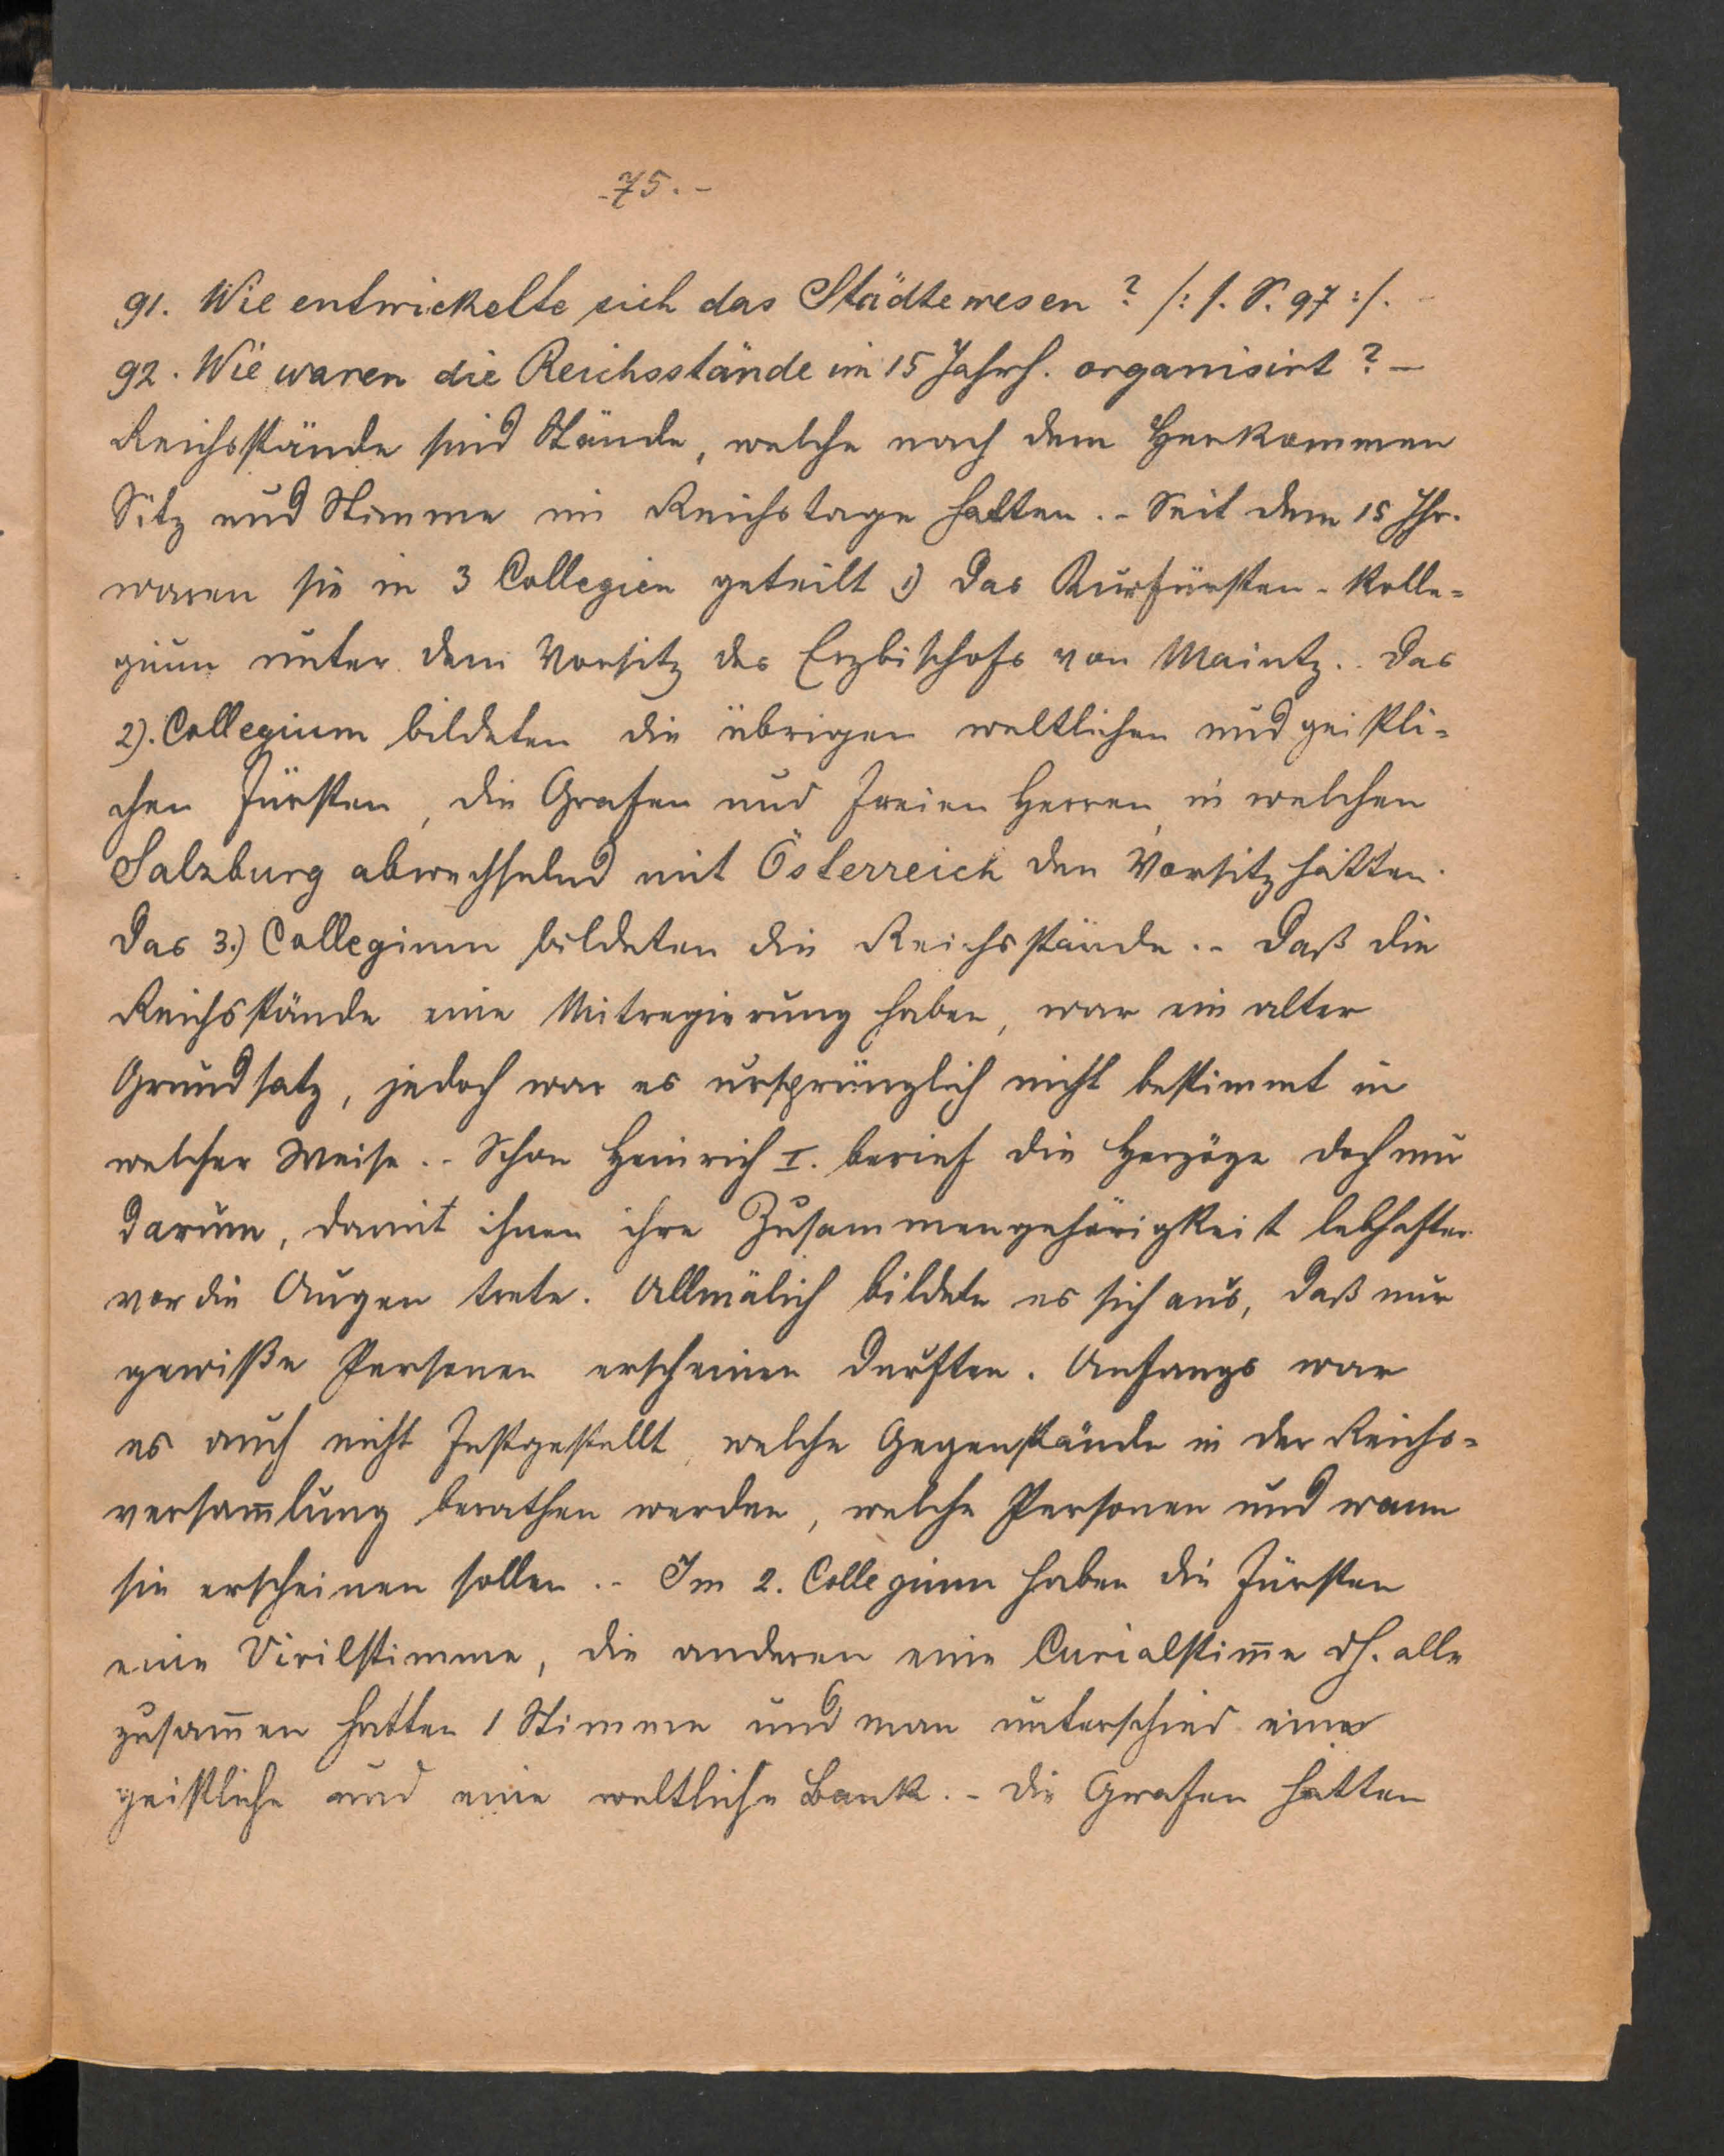 -75.-
91. Wie entwickelte sich das Städtewesen? /: s. S. 97 :/. -
92. Wie waren die Reichsstände im 15 Jahrh. organisirt? -
Reichsstände sind Stände, welche nach dem Herkommen
Sitz und Stimme im Reichstage hatten. - Seit dem 15 Jhr.
waren sie in 3 Collegien geteilt 1) Das Kurfürsten-Kolle-
gium unter dem Vorsitz des Erzbischofs von Maintz. - Das
2). Collegium bildeten die übrigen weltlichen und geistli-
chen Fürsten, die Grafen und freien Herren, in welchen
Salzburg abwechselnd mit Österreich den Vorsitz hatten.
Das 3.) Collegium bildeten die Reichsstände. - Daß die
Reichsstände eine Mitregierung haben, war ein alter
Grundsatz, jedoch war es ursprünglich nicht bestimmt in
welcher Weise. - Schon Heinrich I. berief die Herzöge doch nur
darum, damit ihnen ihre Zusammengehörigkeit lebhafter
vor die Augen trete. Allmälich bildete es sich aus, daß nur
gewiße Personen erscheinen durften. Anfangs war
es auch nicht festgestellt, welche Gegenstände in der Reichs-
versam̄lung berathen werden, welche Personen und wann
sie erscheinen sollen. - Im 2. Collegium haben die Fürsten
eine Virilstimme, die anderen eine Curialstim̄e dh. alle
zusam̄en hatten 1 Stimme und man unterschied eine
geistliche und eine weltliche Bank. - Die Grafen hatten